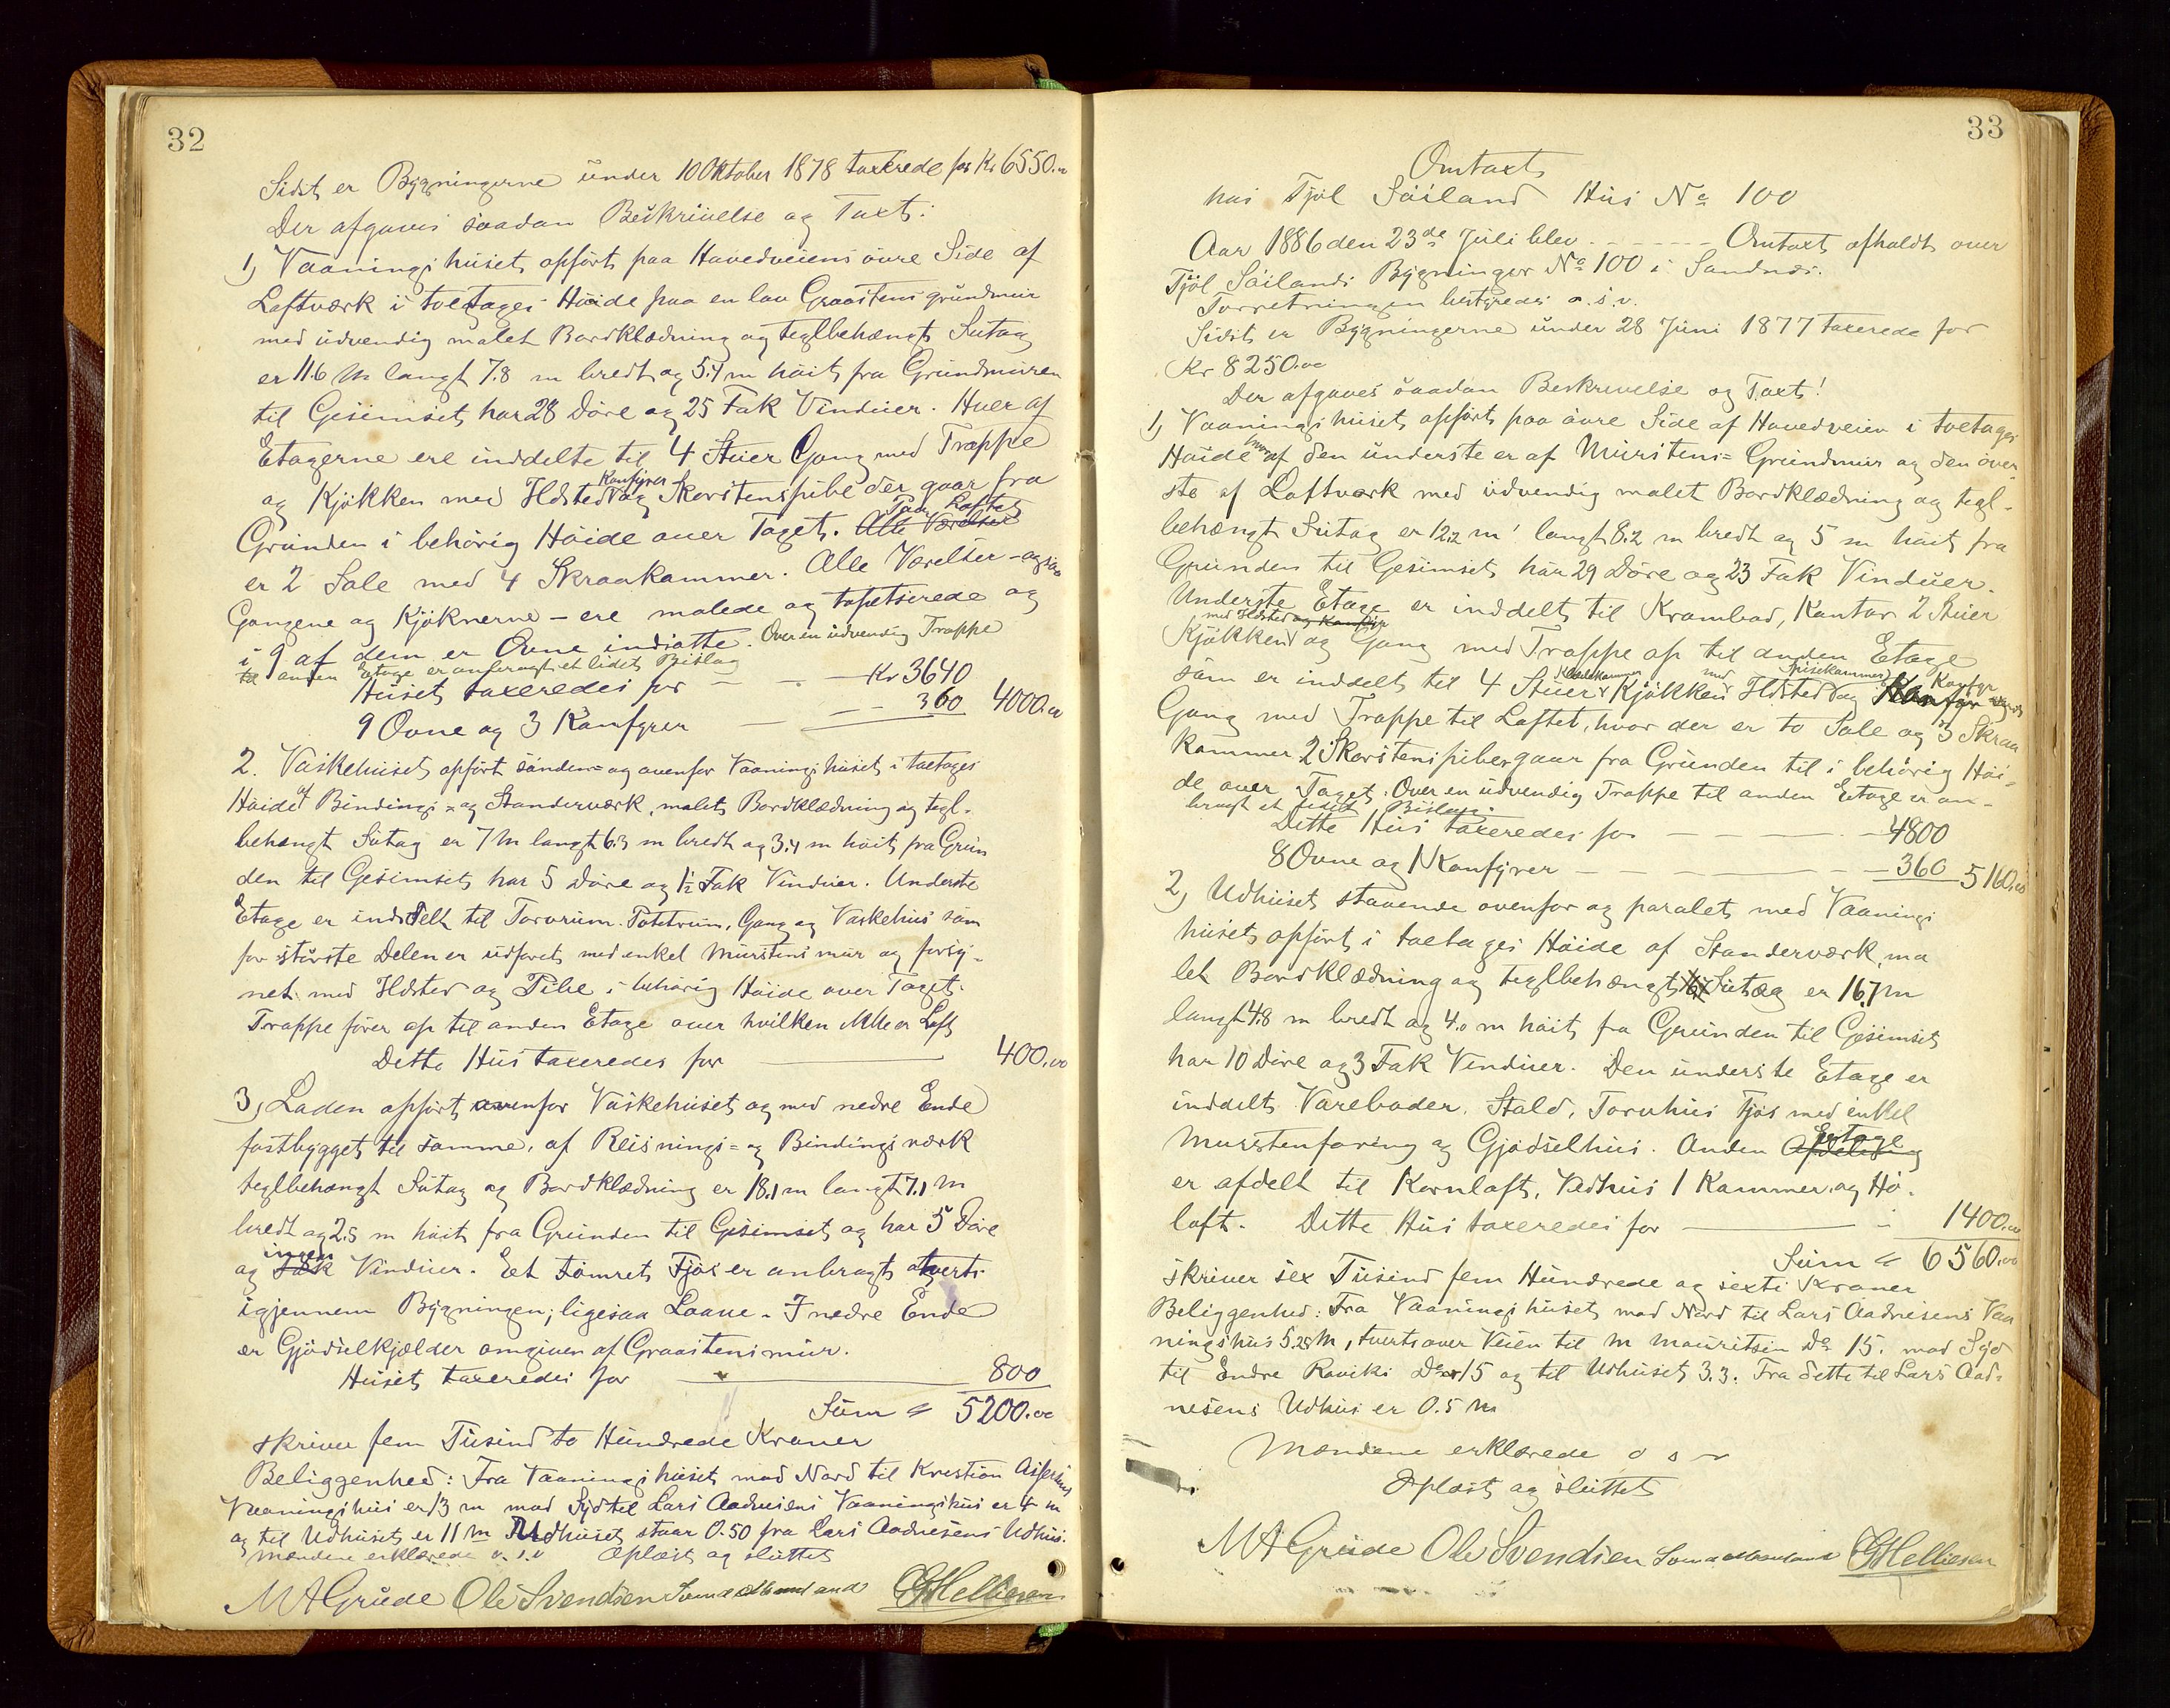 32
Sidst er Bygningerne under 10 Oktober 1878 taxerede for Kr 6550.00
Der afgaves saadan Beskrivelse og Taxt:
1) Vaaningshuset opført paa Hovedveiens øvre Side af
Loftværk i toetages Høide paa en lav Graastens grundmur
med udvendig malet Bordklædning og teglbehængt Sutag
er 11.6 m langt 7.8 m bredt og 5.4 m høit fra Grundmuren
til Gesimset har 28 Døre og 25 Fak Vinduer. Hver af
Etagerne ere inddelte til 4 Stuer Gang med Trappe
og Kjøkken med Ildsted Komfyrer og Skorstenspibe der gaar fra
Grunden i behørig Høide over Taget. Alle Værelser Paa Loftet
er 2 Sale med 4 Skraakammer. Alle Værelser - ogsaa
Gangene og Kjøknerne - ere malede og tapetserede og
i 9 af dem er Ovne indsatte. Over en udvendig Trappe
til anden Etage er anbragt et lidet Bislag
Huset taxeredes for - - - Kr 3640
9 Ovne og 3 Komfyrer - - - 360 4000.00
2. Vaskehuset opført sønden- og ovenfor Vaaningshuset i toetages
Høide af Bindings- og Standerværk, malet Bordklædning og tegl-
behængt Sutag er 7 m langt 6.3 m bredt og 3.4 m høit fra Grun
den til Gesimset har 5 Døre og 1½ Fak Vinduer. Underste
Etage er inddelt til Torvrum. Potetrum, Gang og Vaskehus som
for største Delen er udforet med enkel Murstens mur og forsy-
net med Ildsted og Pibe i behørig Høide over Taget.
Trappe fører op til anden Etage over hvilken er Loft
Dette Hus taxeredes for 400.00
3) Laden opført ovenfor Vaskehuset og med nedre Ende
fastbygget til samme, af Reisnings- og Bindingsværk
teglbehængt Sutag og Bordklædning er 18.1 m langt 7.1 m
bredt og 2.5 m høit fra Grunden til Gesimset og har 5 Døre
og ingen Fak Vinduer. Et tømret Fjøs er anbragt tverts
igjennem Bygningen; ligesaa Laave. I nedre Ende
er Gjødselkjælder omgiven af Graastensmur.
Huset taxeredes for 800
Sum = 5200.00
skriver fem Tusind to Hundrede Kroner
Beliggenhed: Fra Vaaningshuset mod Nord til Kristian
Vaaningshus er 13 m mod Syd til Lars Aadnesens Vaaningshus er 4 m
og til Udhuset er 11 m Udhuset staar 0.50 fra Lars Aadnesens Udhus.
Mændene erklærede o. s. v Oplæst og sluttet
M A Grude Ole Svendsen G Helliesen
33
Omtaxt
hos Tjøl Sviland Hus No 100
Aar 1886 den 23de Juli blev - - - - - Omtaxt afholdt over
Tjøl Svilands Bygninger No 100 i Sandnes.
Forretningen bestyredes o. s. v.
Sidst er Bygningerne under 28 Juni 1877 taxerede for
Kr 8250.00
Der afgaves saadan Beskrivelse og Taxt!
1) Vaaningshuset opført paa øvre Side af Hovedveien i toetages
Høide hvoraf den underste er af Murstens- Grundmur og den øver
ste af Loftværk med udvendig malet Bordklædning og tegl-
behængt Sutag er 12.2 m langt 8.2 m bredt og 5 m høit fra
Grunden til Gesimset har 29 Døre og 23 Fak Vinduer.
Underste Etage er inddelt til Krambod, Kontor 2 Stuer
Kjøkken med Ildsted og Komfyr og Gang med Trappe op til anden Etage
som er inddelt til 4 Stuer Kjøkken med Ildsted og Spisekammer Komfyr
Gang med Trappe til Loftet, hvor der er to Sale og 3 Skraa
kammer 2 Skorstenspiber gaar fra Grunden til i behørig Høi-
de over Taget. Over en udvendig Trappe til anden Etage er an-
bragt et lidet Bislag.
Dette Hus taxeredes for - - - - 4800
8 Ovne og 1 Komfyrer - - - - 360 5160.00
2) Udhuset staaende ovenfor og paralelt med Vaanings
huset opført i toetages Høide af Standerværk, ma
let Bordklædning og teglbehængt Sutag er 16.7 m
langt 4.8 m bredt og 4.0 m høit fra Grunden til Gesimset
har 10 Døre og 3 Fak Vinduer. Den underste Etage er
inddelt Vareboder, Stald, Torvhus Fjøs med enkel
Murstenforing og Gjødselhus. Anden Afdeling Eetage
er afdelt til Kornloft, Vedhus 1 Kammer og Hø-
loft. Dette Hus taxeredes for 1400.00
Sum = 6560.00
skriver sex Tusind fem Hundrede og sexti Kroner
Beliggenhed: Fra Vaaningshuset mod Nord til Lars Aadnesens Vaa
ningshus 5.25 m, tverts over Veien til M Mauritsen Do 15. mod Syd
til Endre Raviks Do 15 og til Udhuset 3.3. Fra dette til Lars Aad-
nesens Udhus er 0.5 m
Mændene erklærede o s v
Oplæst og sluttet
M A Grude Ole Svendsen G Helliesen